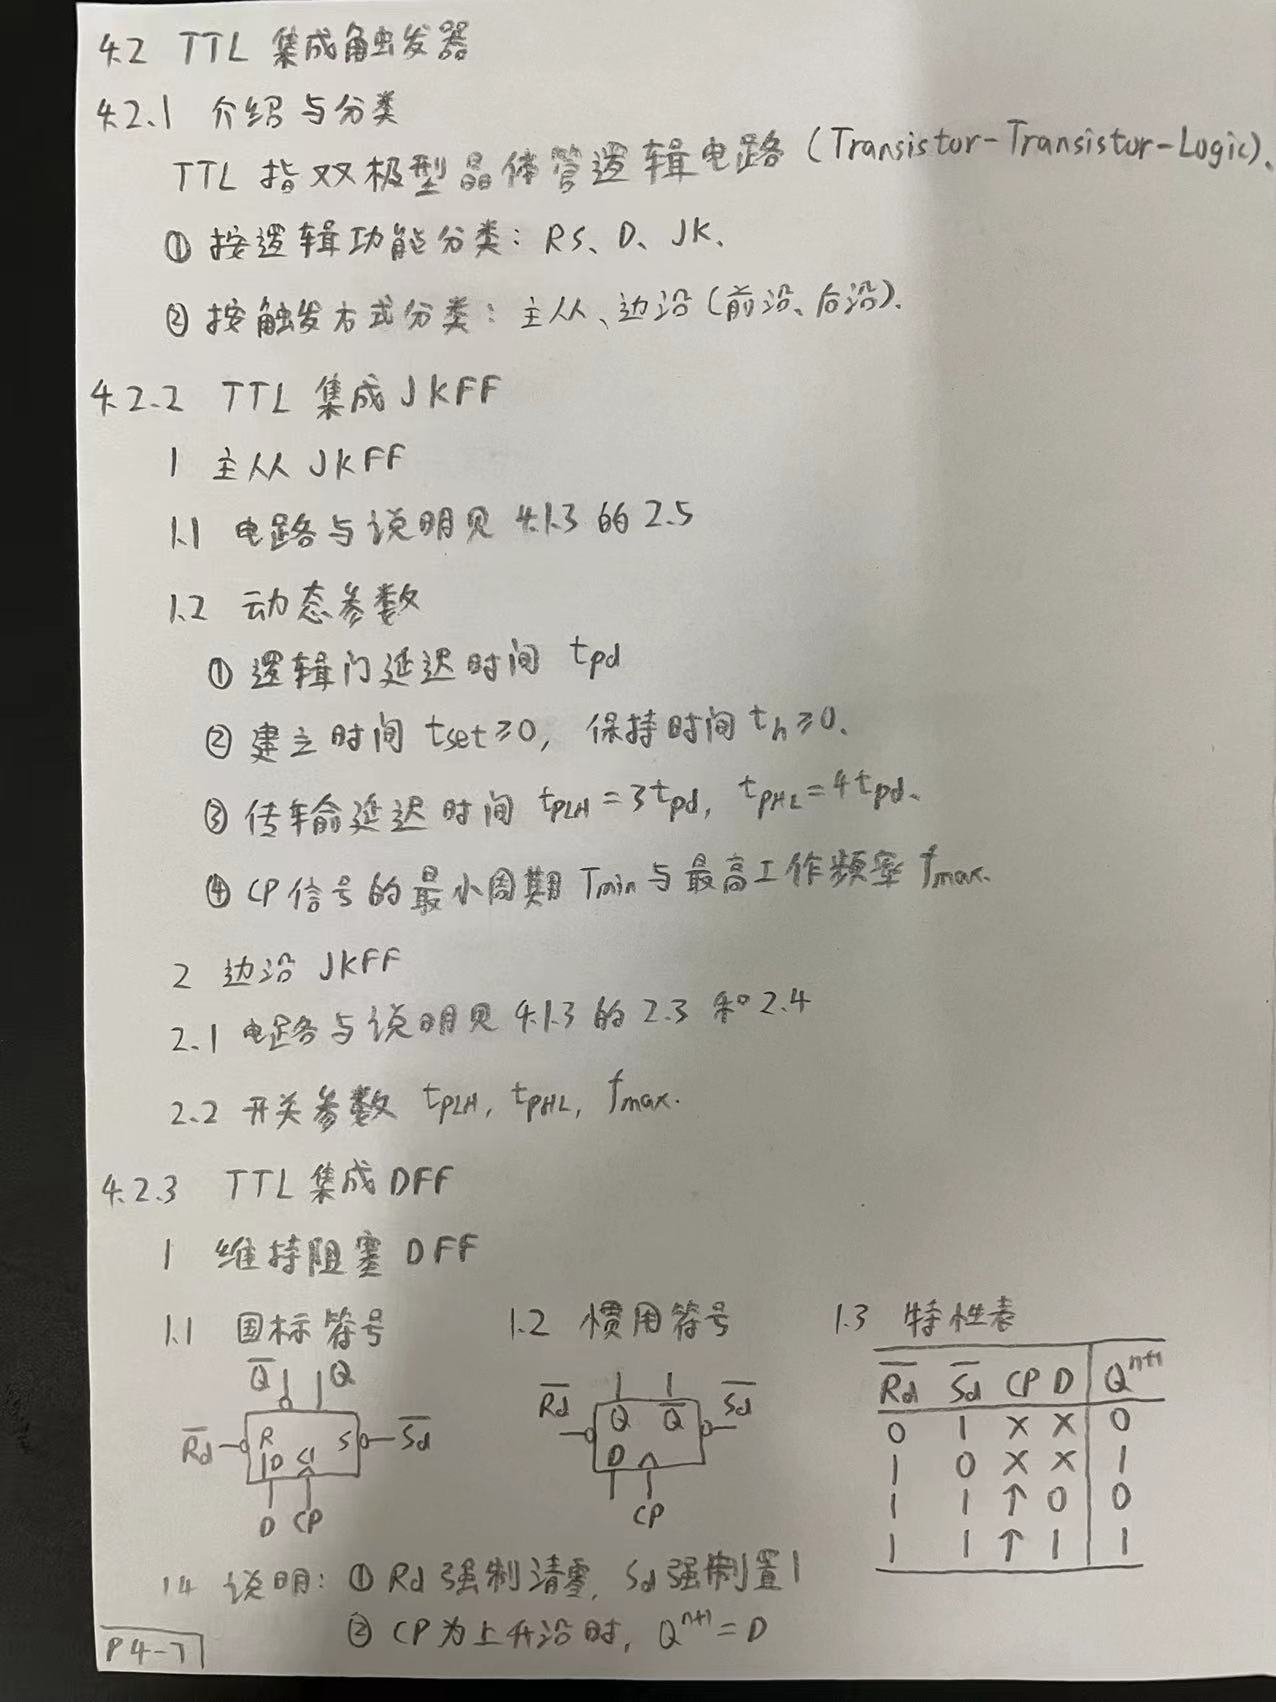 4.2 TTL 集成触发器
4.2.1 介绍与分类
TTL 指双极型晶体管逻辑电路 (Transistor-Transistor-Logic).
① 按逻辑功能分类: RS、D、JK、
② 按触发方式分类: 主从、边沿 (前沿、后沿).
4.2.2 TTL 集成 JKFF
1 主从 JKFF
1.1 电路与说明见 4.1.3 的 2.5
1.2 动态参数
① 逻辑门延迟时间 tpd
② 建立时间 tset≥0, 保持时间 th≥0.
③ 传输延迟时间 tPLH=3tpd, tPHL=4tpd.
④ CP信号的最小周期 Tmin 与最高工作频率 fmax.
2 边沿 JKFF
2.1 电路与说明见 4.1.3 的 2.3 和 2.4
2.2 开关参数 tPLH, tPHL, fmax.
4.2.3 TTL 集成 DFF
1 维持阻塞 DFF
1.1 国标符号 1.2 惯用符号 1.3 特性表
Q̅ Q
R̅d R 1D C1 S S̅d
D CP
R̅d Q Q̅ S̅d
D
CP
R̅d S̅d CP D Qⁿ⁺¹
0 1 × × 0
1 0 × × 1
1 1 ↑ 0 0
1 1 ↑ 1 1
1.4 说明: ① Rd 强制清零, Sd 强制置1
② CP为上升沿时, Qⁿ⁺¹=D
P4-7